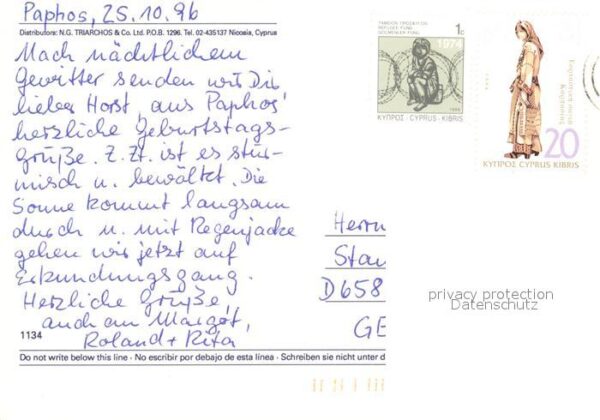 Paphos, 25.10.96
Distributors: N.G. TRIARCHOS & Co. Ltd. P.O.B. 1296. Tel. 02-435137 Nicosia, Cyprus
Nach nächtlichem
Gewitter senden wir Dir
lieber Horst, aus Paphos
herzliche Geburtstags-
grüße. Z.Zt. ist es stür-
misch u. bewölkt. Die
Sonne kommt langsam
durch u. mit Regenjacke
gehen wir jetzt auf
Erkundungsgang.
Herzliche Grüße,
auch an Margot,
Roland + Rita
1134
Do not write below this line · No escribir por debajo de esta línea · Schreiben sie nicht unter d
1c
1974
ΚΥΠΡΟΣ · CYPRUS · KIBRIS
20
ΚΥΠΡΟΣ CYPRUS KIBRIS
Herrn
Stau
D658
GE
privacy protection
Datenschutz